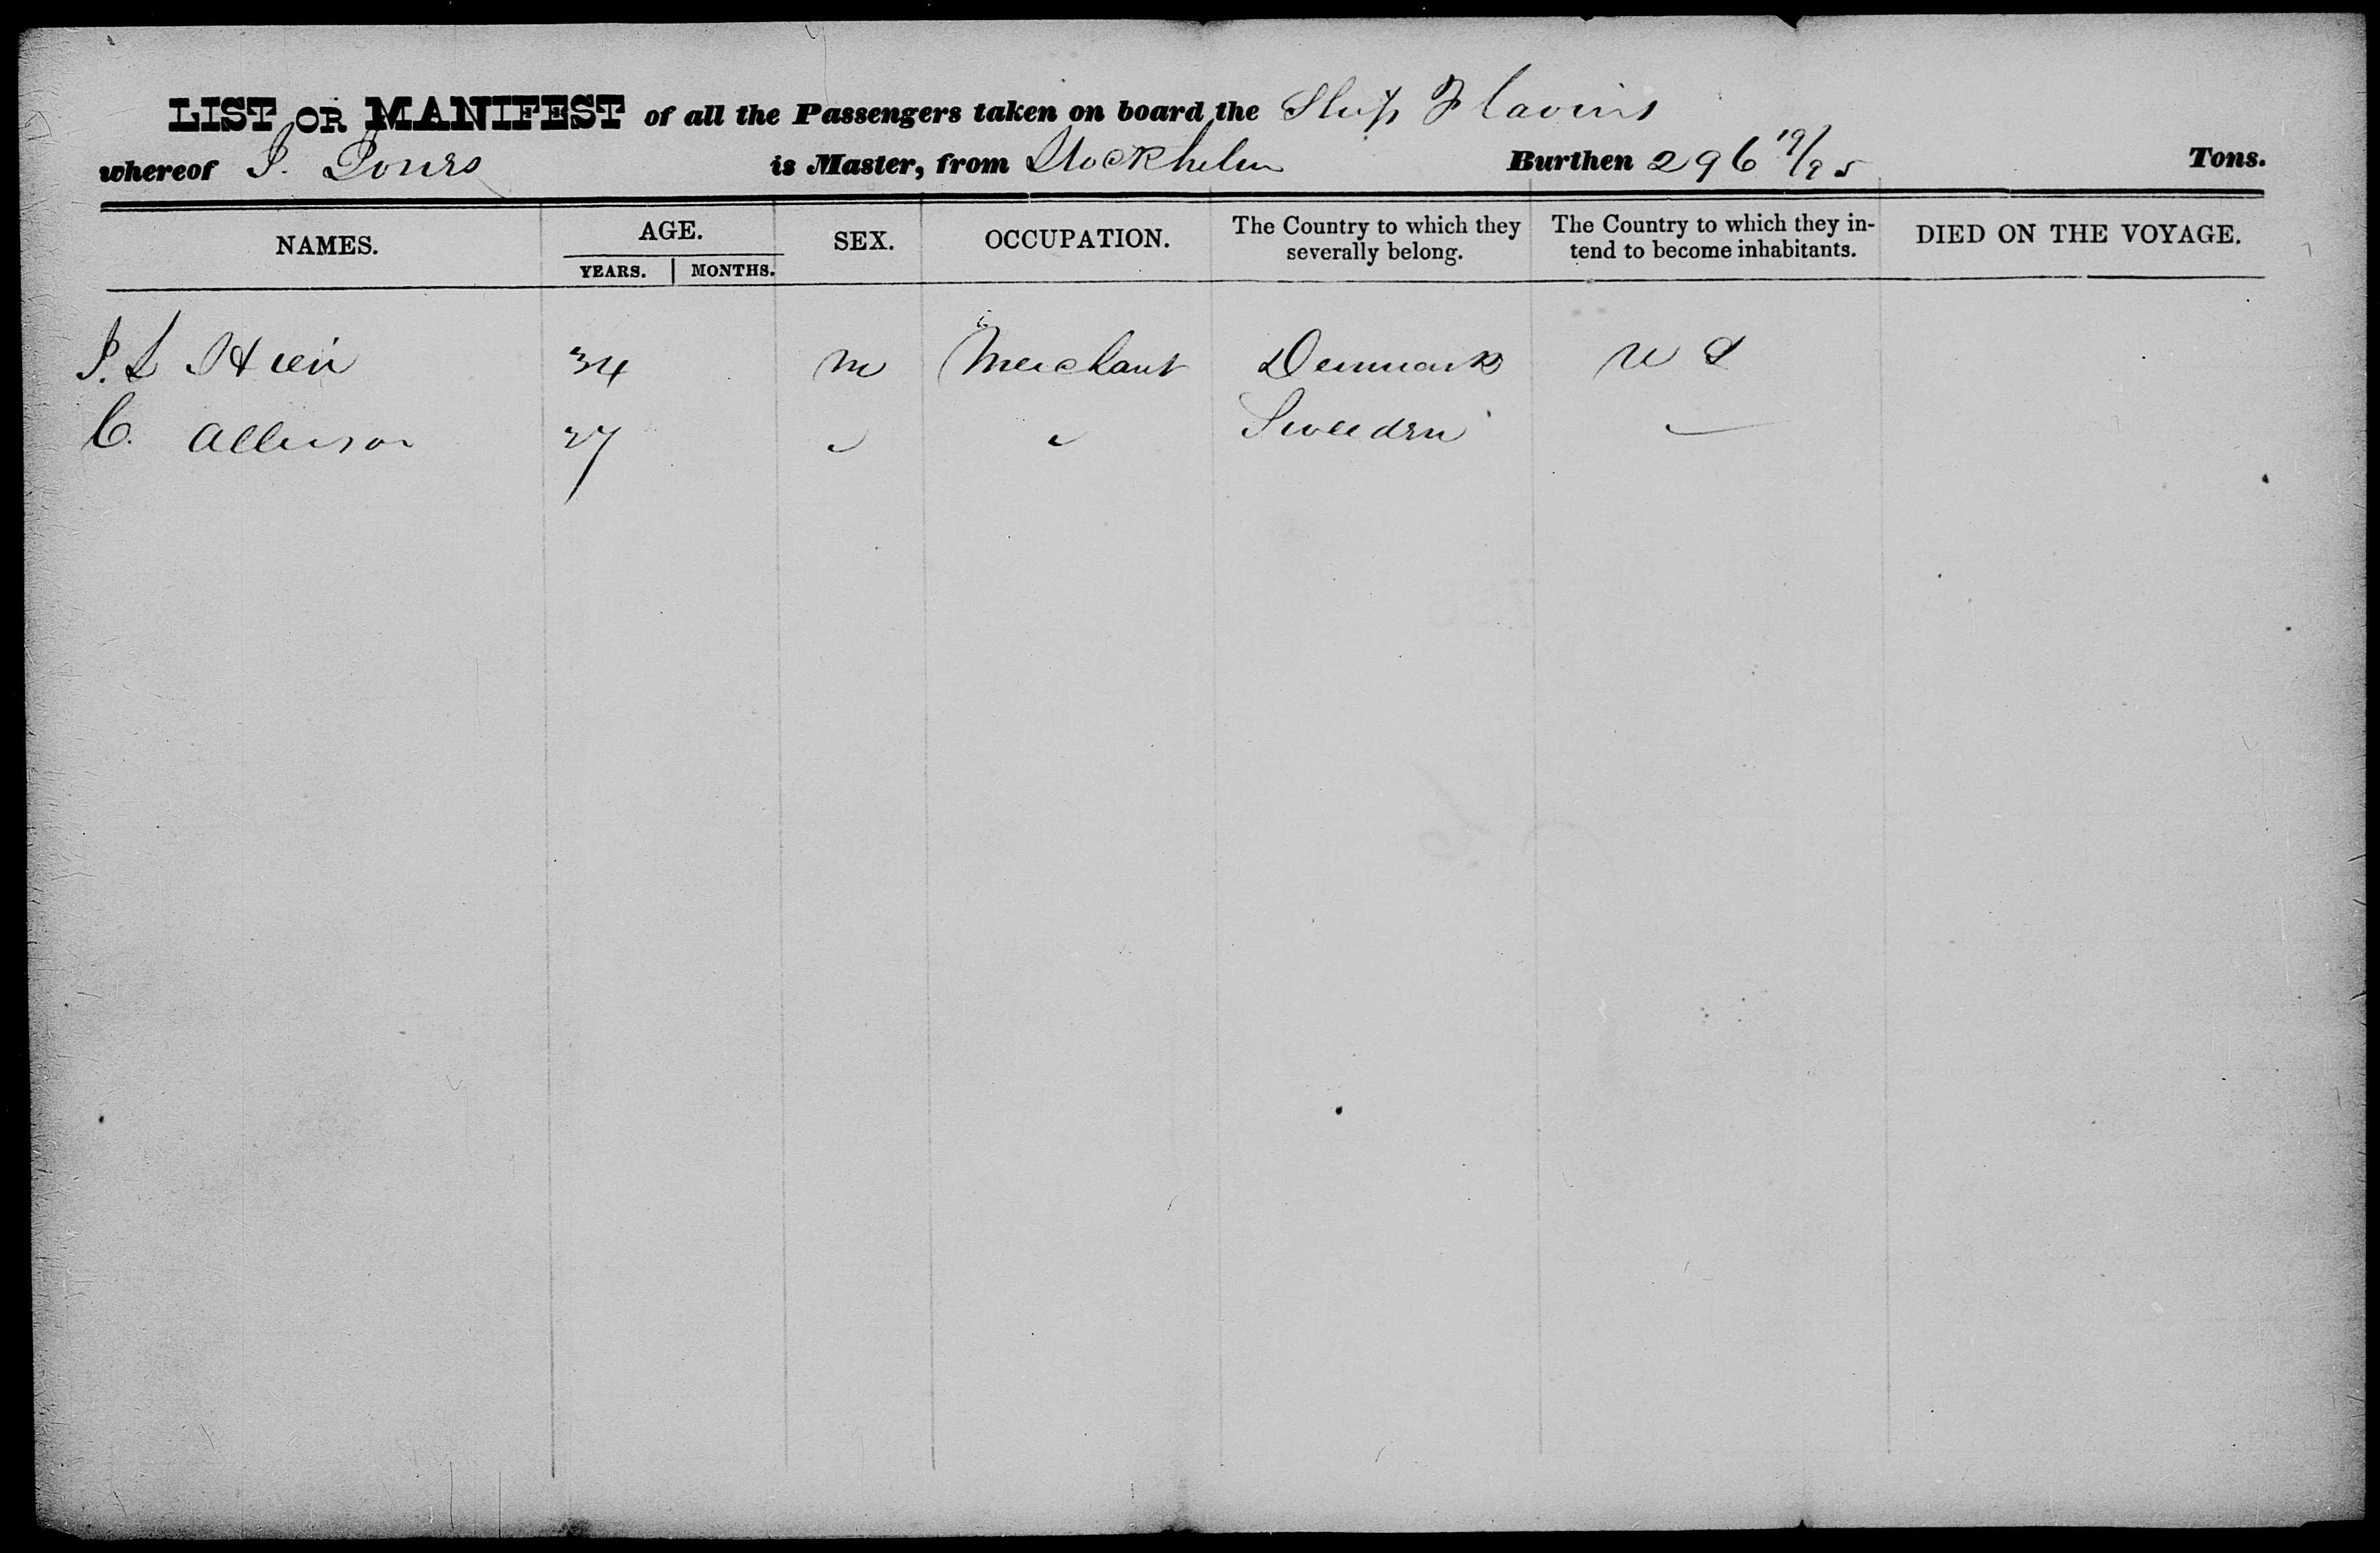 LIST OR MANIFEST of all the Passengers taken on board the Ship Flavius
whereof J. is Master, from Stockholm Burthen 296 19/95 Tons.
NAMES. AGE. SEX. OCCUPATION. The Country to which they severally belong. The Country to which they in-tend to become inhabitants. DIED ON THE VOYAGE.
YEARS. MONTHS.
J. L 34 m Merchant Denmark U S
C. 27 " " Sweeden "